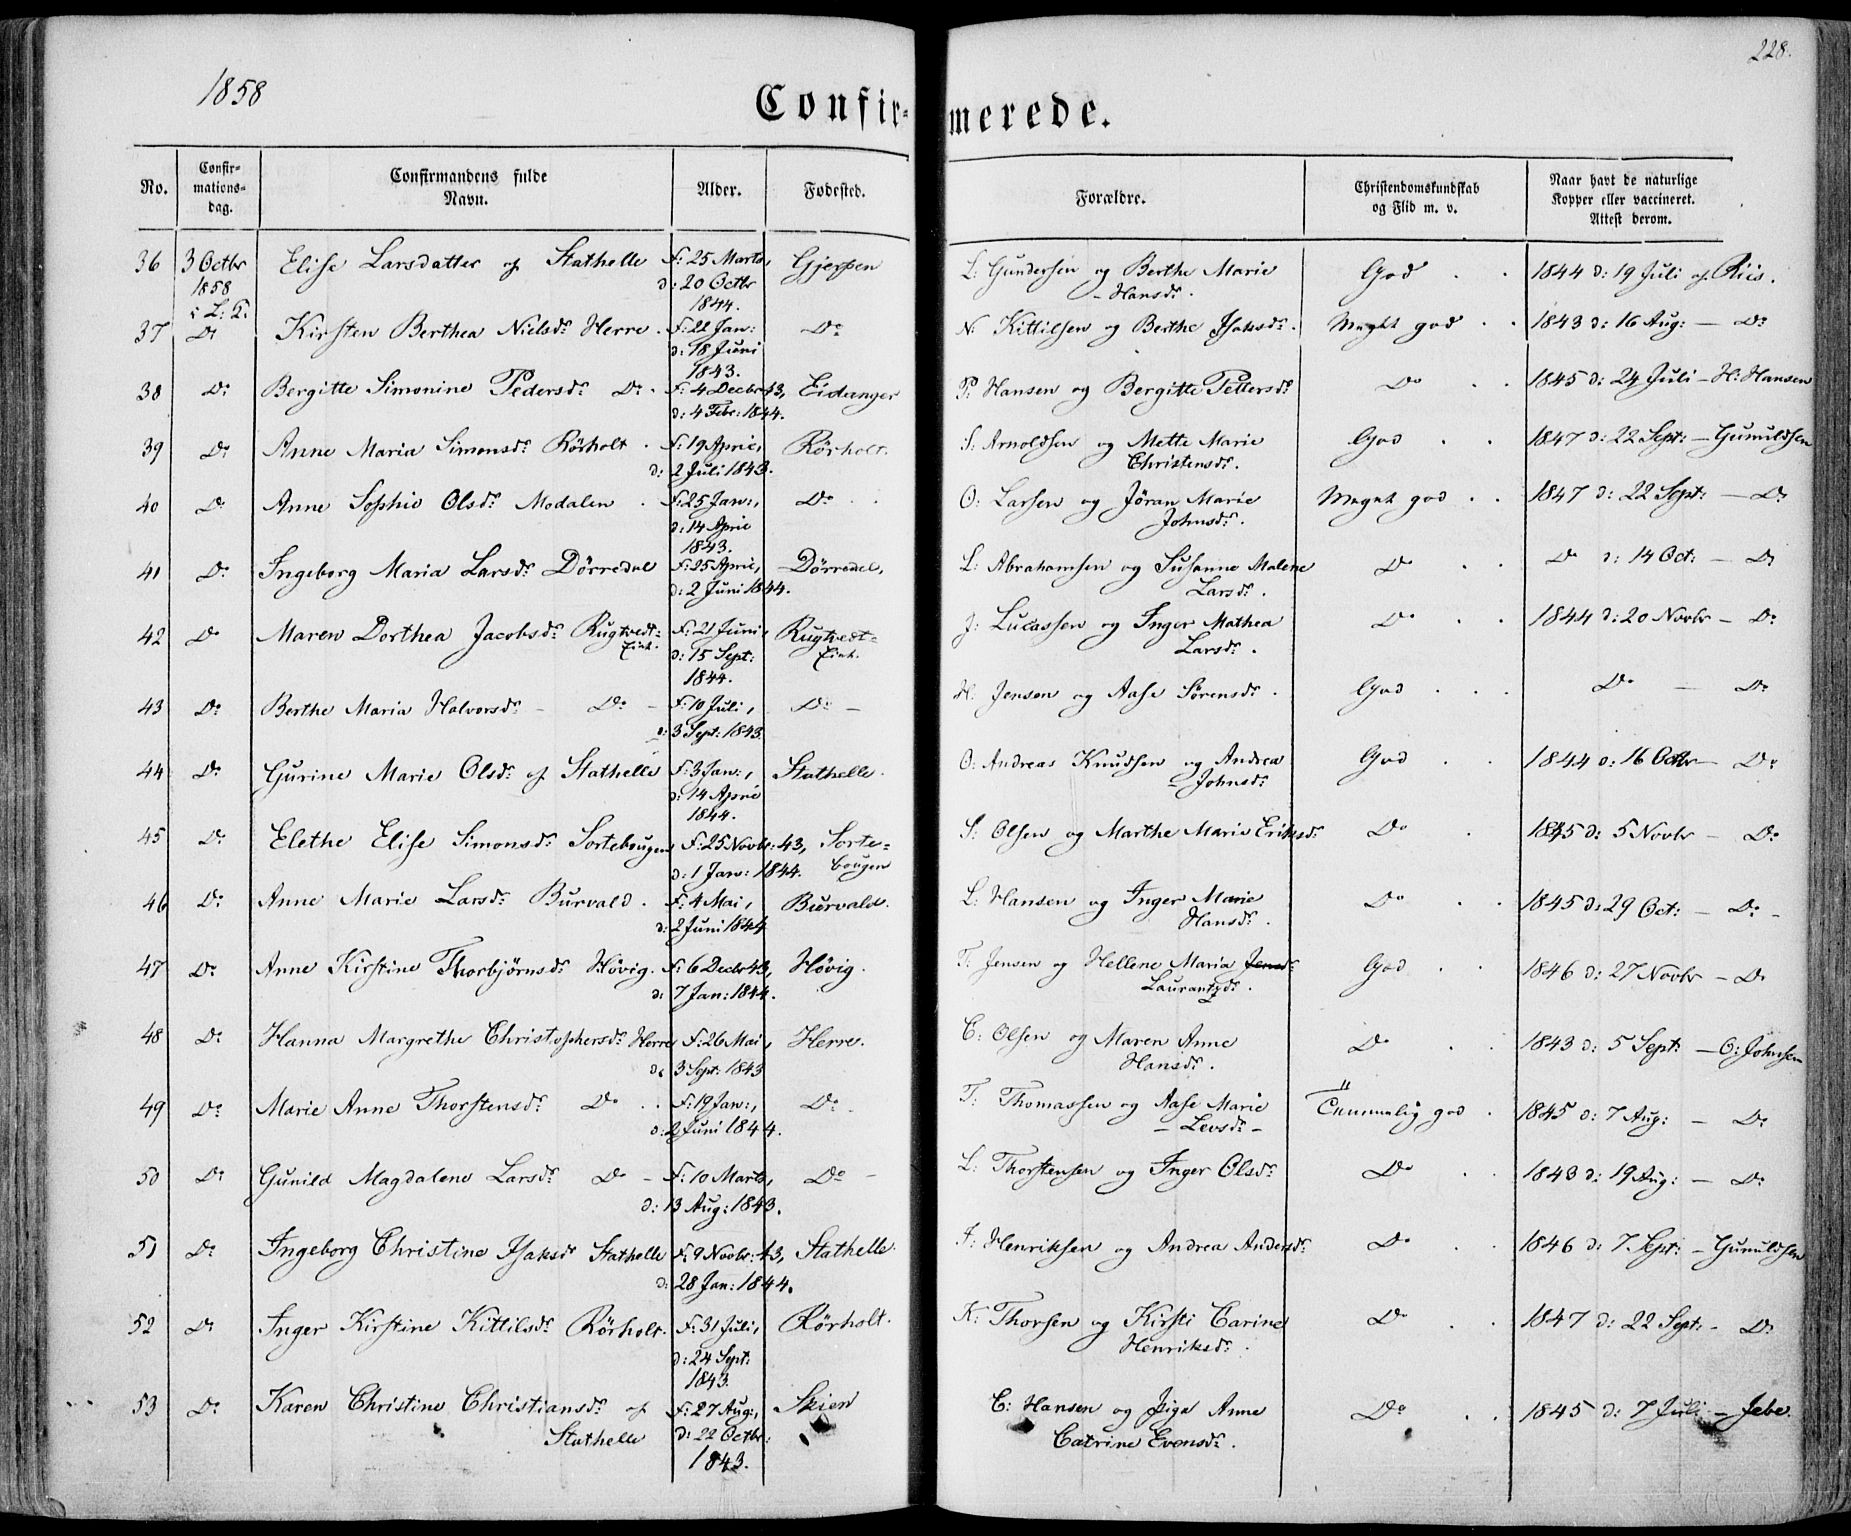 228.
1858
Confir-
merede.
No.
Confir-
mations-
dag.
Confirmandens fulde
Navn.
Alder.
Fødested.
Forældre.
Christendomskundskab
og Flid m. v.
Naar havt de naturlige
Kopper eller vaccineret.
Attest derom.
36 3 Octbr 1858 i L: K: Elise Larsdatter af Stathelle F: 25 Marts, d: 20 Octbr 1844. Gjerpen L: Gundersen og Berthe Marie Hansd: God 1844 d: 19 Juli af Riis.
37 Do Kirsten Berthea Nielsd: Herre F: 22 Jan: d: 18 Juni 1843. Do N: Kittilsen og Berthe Isaksd: Meget god 1843 d: 16 Aug: — Do
38 Do Bergitte Simonine Pedersd: Do F: 4 Decbr 43, d: 4 Febr: 1844. Eidanger P: Hansen og Bergitte Pettersd: Do 1845 d: 24 Juli — H: Hansen
39 Do Anne Maria Simonsd: Rörholt F: 19 April, d: 2 Juli 1843. Rörholt. S: Arnoldsen og Mette Marie Christensd: God 1847 d: 22 Sept: — Gunuldsen
40 Do Anne Sophie Olsd: Modalen F: 25 Jan:, d: 14 April 1843. Do O: Larsen og Jöran Marie Johnsd: Meget god 1847 d: 22 Sept: — Do
41 Do Ingeborg Maria Larsd: Dörredal F: 25 April, d: 2 Juni 1844. Dörredal, L: Abrahamsen og Susanne Malene Larsd: Do Do d: 14 Oct: — Do
42 Do Maren Dorthea Jacobsd: Rugtvedt- Eiet. F: 21 Juni, d: 15 Sept: 1844. Rugtvedt- Eiet. J: Lucassen og Inger Mathea Larsd: Do 1844 d: 20 Novbr — Do
43 Do Berthe Maria Halvorsd: — Do — F: 10 Juli, d: 3 Sept: 1843. Do — H: Jensen og Aase Sörensd: God Do — Do
44 Do Gurine Marie Olsd: af Stathelle F: 3 Jan:, d: 14 April 1844. Stathelle. O: Andreas Knudsen og Andrea Johnsd: God 1844 d: 16 Octbr — Do
45 Do Elethe Elise Simonsd: Sortebougen F: 25 Novbr: 43, d: 1 Jan: 1844. Sorte- bougen S: Olsen og Marthe Maria Eriksd: Do 1845 d: 5 Novbr — Do
46 Do Anne Marie Larsd: Burvald. F: 4 Mai, d: 2 Juni 1844 Burvald. L: Hansen og Inger Marie Hansd: Do 1845 d: 29 Oct: — Do —
47 Do Anne Kirstine Thorbjörnsd: Hövig. F: 6 Decbr 43, d: 7 Jan: 1844. Hövig. T: Jensen og Hellene Maria Jensd: Laurantzd: God 1846 d: 27 Novbr — Do
48 Do Hanna Margrethe Christophersd: Herre F: 26 Mai, d: 3 Sept: 1843 Herre. C: Olsen og Maren Anne Hansd: Do 1843 d: 5 Sept: — O: Johnsen
49 Do Marie Anne Thorstensd: Do F: 19 Jan:, d: 2 Juni 1844. Do T: Thomassen og Aase Marie — Levsd: — Temmelig god 1845 d: 7 Aug: — Do
50 Do Gunild Magdalene Larsd: Do — F: 10 Marts, d: 13 Aug: 1843. Do — L: Thorstensen og Inger Olsd: Do 1843 d: 19 Aug: — Do
51 Do Ingeborg Christine Isaksd: Stathelle F: 9 Novbr: 43, d: 28 Jan: 1844. Stathelle. I: Henriksen og Andrea Andersd: Do 1846 d: 7 Sept: — Gunuldsen
52 Do Inger Kirstine Kittilsd: Rörholt. F: 31 Juli, d: 24 Sept: 1843. Rörholt. K: Thorsen og Kirsti Carine Henriksd: Do 1847 d: 22 Sept: — Do
53 Do Karen Christine Christiansd: af Stathelle F: 27 Aug:, d: 22 Octbr: 1843. Skien C: Hansen og Anne Catrine Evensd: Do 1845 d: 7 Juli — Jebe.